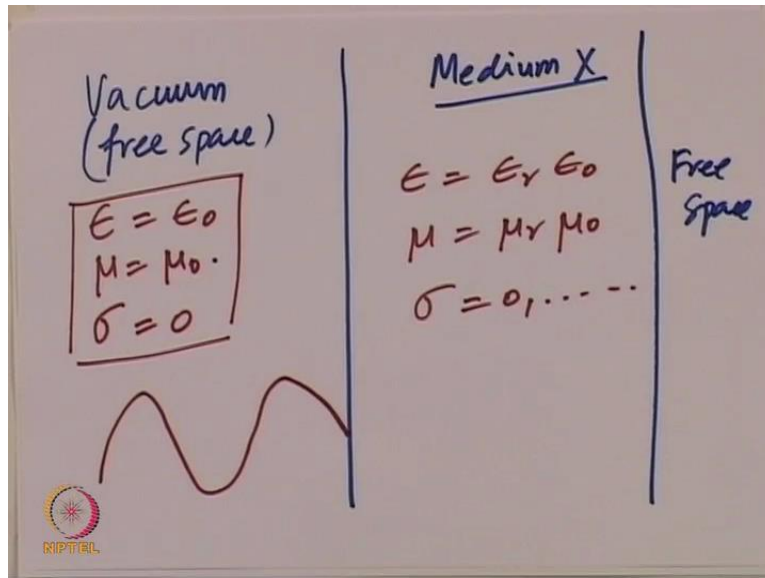 Vacuum
(free space)
ϵ = ϵ0
μ = μ0.
σ = 0
Medium X
ϵ = ϵr ϵ0
μ = μr μ0
σ = 0, .....
Free
Space
NPTEL